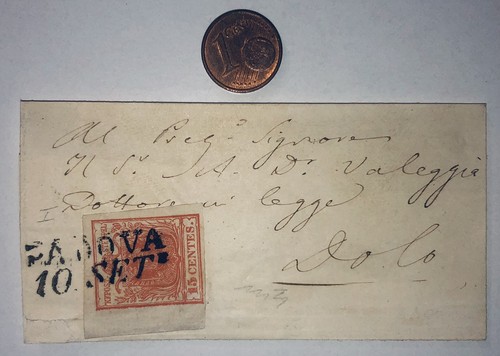 1
Al Preg.º Signore
Il Sr. A. Dr. Valeggia
Dottore in legge
Dolo
PADOVA
10. SETE
15 CENTES.